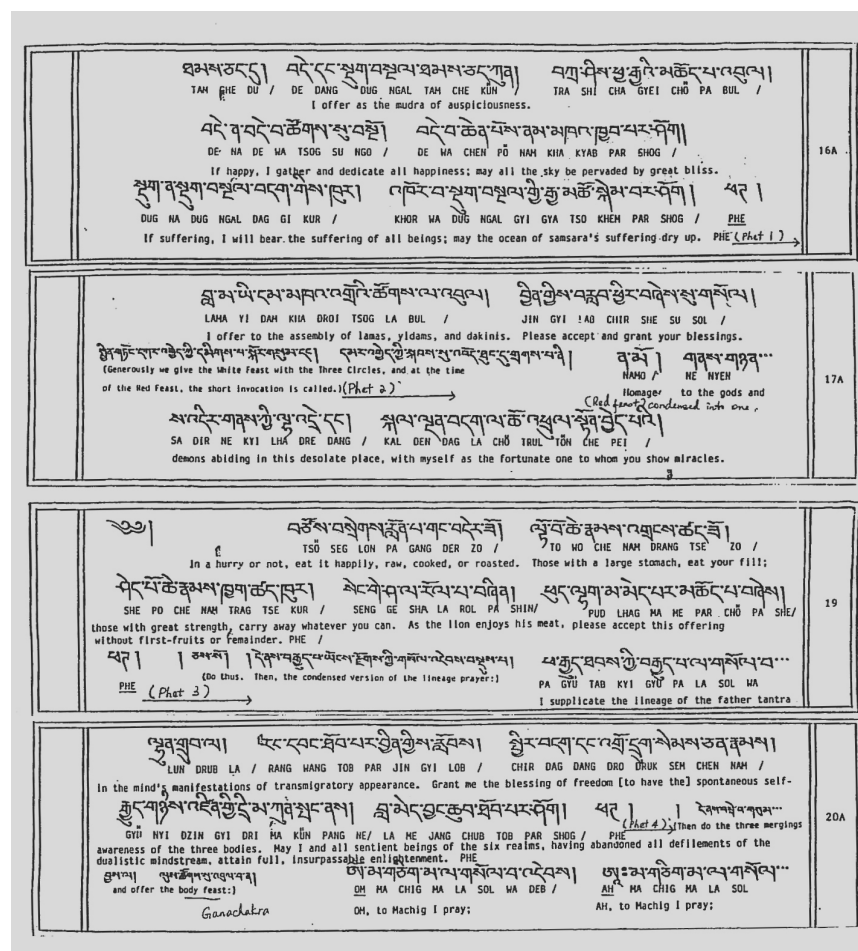 ཐམས་ཅད་དུ། བདེ་དང་སྡུག་བསྔལ་ཐམས་ཅད་ཀུན། བཀྲ་ཤིས་ཕྱ་རྒྱའི་མཆོད་པ་འབུལ།
TAM CHE DU / DE DANG DUG NGAL TAM CHE KÜN / TRA SHI CHA GYEI CHÖ PA BUL /
I offer as the mudra of auspiciousness.
བདེ་ན་བདེ་བ་ཚོགས་སུ་བསྔོ། བདེ་བ་ཆེན་པོས་ནམ་མཁའ་ཁྱབ་པར་ཤོག།
DE NA DE WA TSOG SU NGO / DE WA CHEN PÖ NAM KHA KYAB PAR SHOG /
16A
If happy, I gather and dedicate all happiness; may all the sky be pervaded by great bliss.
སྡུག་ན་སྡུག་བསྔལ་བདག་གིས་ཁུར། འཁོར་བ་སྡུག་བསྔལ་གྱི་རྒྱ་མཚོ་སྐེམ་པར་ཤོག། ཕཊ།
DUG NA DUG NGAL DAG GI KUR / KHOR WA DUG NGAL GYI GYA TSO KHEM PAR SHOG / PHE
If suffering, I will bear the suffering of all beings; may the ocean of samsara's suffering dry up. PHE (Phet 1)
བླ་མ་ཡི་དམ་མཁའ་འགྲོའི་ཚོགས་ལ་འབུལ། བྱིན་གྱིས་བརླབ་ཕྱིར་བཞེས་སུ་གསོལ།
LAMA YI DAM KHA DROI TSOG LA BUL / JIN GYI LAB CHIR SHE SU SOL /
I offer to the assembly of lamas, yidams, and dakinis. Please accept and grant your blessings.
ན་མོ། གནས་གཉན...
(Generously we give the White Feast with the Three Circles, and at the time NAMO / NE NYEN
17A
of the Red Feast, the short invocation is called.) (Phet 2) Homage to the gods and
(Red feast) condensed into one,
ས་འདིར་གནས་ཀྱི་ལྷ་འདྲེ་དང། སྐལ་ལྡན་བདག་ལ་ཆོ་འཕྲུལ་སྟོན་བྱེད་པའི།
SA DIR NE KYI LHA DRE DANG / KAL DEN DAG LA CHÖ TRUL TÖN CHE PEI /
demons abiding in this desolate place, with myself as the fortunate one to whom you show miracles.
༄༅། བཙོས་བསྲེགས་རློན་པ་གང་བདེར་ཟོ། ལྟོ་བོ་ཆེ་རྣམས་འགྲངས་ཚད་ཟོ།
TSÖ SEG LON PA GANG DER ZO / TO WO CHE NAM DRANG TSE ZO /
In a hurry or not, eat it happily, raw, cooked, or roasted. Those with a large stomach, eat your fill;
ཤེད་པོ་ཆེ་རྣམས་ཁྱག་ཚད་ཁུར། སེང་གེ་ཤ་ལ་རོལ་པ་བཞིན། ཕུད་ལྷག་མ་མེད་པར་མཆོད་པ་བཞེས།
19
SHE PO CHE NAM TRAG TSE KUR / SENG GE SHA LA ROL PA SHIN/ PUD LHAG MA ME PAR CHÖ PA SHE/
those with great strength, carry away whatever you can. As the lion enjoys his meat, please accept this offering
without first-fruits or remainder. PHE /
ཕཊ། ཕ་རྒྱུད་ཐབས་ཀྱི་བརྒྱུད་པ་ལ་གསོལ་བ...
(Do thus. Then, the condensed version of the lineage prayer:) PA GYÜ TAB KYI GYÜ PA LA SOL WA
PHE (Phet 3)
I supplicate the lineage of the father tantra
ལྷུན་གྲུབ་ལ། རང་དབང་ཐོབ་པར་བྱིན་གྱིས་རློབས། སྤྱིར་བདག་དང་འགྲོ་དྲུག་སེམས་ཅན་རྣམས།
LUN DRUB LA / RANG WANG TOB PAR JIN GYI LOB / CHIR DAG DANG DRO DRUK SEM CHEN NAM /
In the mind's manifestations of transmigratory appearance. Grant me the blessing of freedom [to have the] spontaneous self-
རྒྱུད་གཉིས་འཛིན་གྱི་དྲི་མ་ཀུན་སྤང་ནས། བླ་མེད་བྱང་ཆུབ་ཐོབ་པར་ཤོག། ཕཊ།
20A
GYÜ NYI DZIN GYI DRI MA KÜN PANG NE/ LA ME JANG CHUB TOB PAR SHOG / PHE (Phet 4) (Then do the three mergings
awareness of the three bodies. May I and all sentient beings of the six realms, having abandoned all defilements of the
dualistic mindstream, attain full, insurpassable enlightenment. PHE
ཨོཾ་མ་གཅིག་མ་ལ་གསོལ་བ་འདེབས། ཨཱཿམ་གཅིག་མ་ལ་གསོལ...
and offer the body feast:) OM MA CHIG MA LA SOL WA DEB / AH MA CHIG MA LA SOL
Ganachakra OH, to Machig I pray; AH, to Machig I pray;